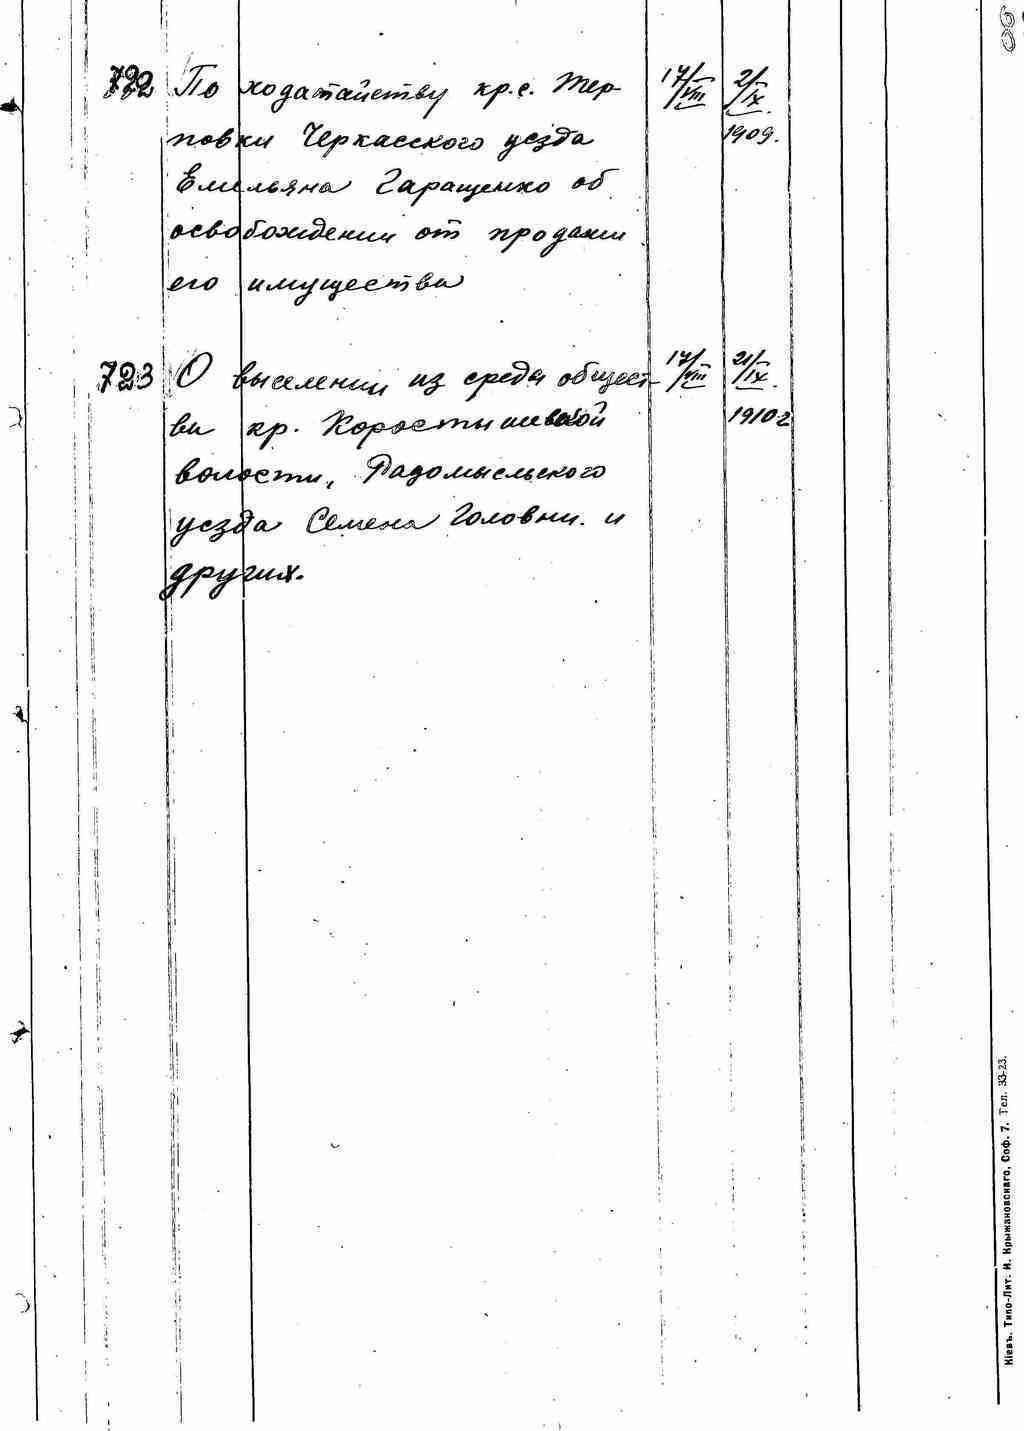 722 По ходатайству кр. с. Тер- 17/VIII 2/IX
новки Черкасского уезда 1909.
Емельяна Гаращенко об
освобождении от продажи
его имущества
723 О выселении из среды общест- 17/VIII 21/IX
ва кр. Коростышевской 1910г
волости, Радомысльского
уезда Семена Головни и
других.
Кіевъ. Типо-Лит. И. Крыжановскаго, Соф. 7. Тел. 33-23.